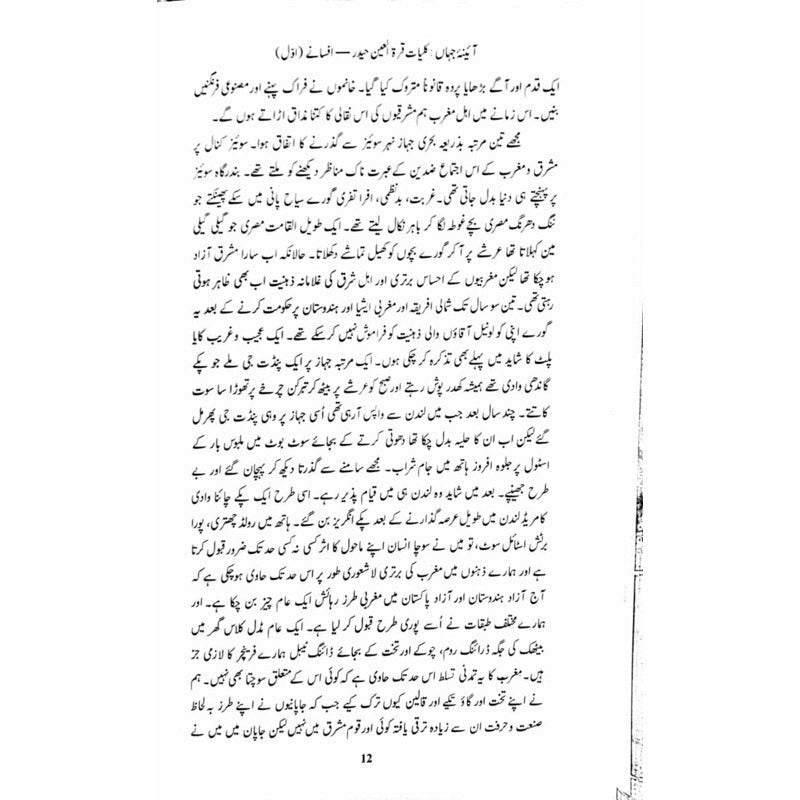 آئینۂ جہاں: کلیات قرۃ العین حیدر — افسانے (اوّل)
ایک قدم اور آگے بڑھایا پردہ قانوناً متروک کیا گیا۔ خانموں نے فراک پہنے اور مصنوعی فرنگنیں
بنیں۔ اس زمانے میں اہل مغرب ہم مشرقیوں کی اس نقالی کا کتنا مذاق اڑاتے ہوں گے۔
مجھے تین مرتبہ بذریعہ بحری جہاز نہر سوئیز سے گذرنے کا اتفاق ہوا۔ سوئیز کنال پر
مشرق و مغرب کے اس اجتماع ضدین کے عبرت ناک مناظر دیکھنے کو ملتے تھے۔ بندرگاہ سوئیز
پر پہنچتے ہی دنیا بدل جاتی تھی۔ غربت، بدنظمی، افراتفری گورے سیاح پانی میں سکے پھینکتے جو
ننگ دھڑنگ مصری بچے غوطہ لگا کر باہر نکال لیتے تھے۔ ایک طویل القامت مصری جو گیلی گیلی
مین کہلاتا تھا عرشے پر آ کر گورے بچوں کو کھیل تماشے دکھلاتا۔ حالانکہ اب سارا مشرق آزاد
ہو چکا تھا لیکن مغربیوں کے احساس برتری اور اہل شرق کی غلامانہ ذہنیت اب بھی ظاہر ہوتی
رہتی تھی۔ تین سو سال تک شمالی افریقہ اور مغربی ایشیا اور ہندوستان پر حکومت کرنے کے بعد یہ
گورے اپنی کولونیل آقاؤں والی ذہنیت کو فراموش نہیں کر سکے تھے۔ ایک عجیب و غریب کایا
پلٹ کا شاید میں پہلے بھی تذکرہ کر چکی ہوں۔ ایک مرتبہ جہاز پر ایک پنڈت جی ملے جو پکے
گاندھی وادی تھے ہمیشہ کھدر پوش رہتے اور صبح کو عرشے پر بیٹھ کر تیرکن چرخے پر تھوڑا سا سوت
کاتتے۔ چند سال بعد جب میں لندن سے واپس آ رہی تھی اُسی جہاز پر وہی پنڈت جی پھر مل
گئے لیکن اب ان کا حلیہ بدل چکا تھا دھوتی کرتے کے بجائے سوٹ بوٹ میں ملبوس بار کے
اسٹول پر جلوہ افروز ہاتھ میں جام شراب۔ مجھے سامنے سے گذرتا دیکھ کر پہچان گئے اور بے
طرح جھینپے۔ بعد میں شاید وہ لندن ہی میں قیام پذیر رہے۔ اسی طرح ایک پکے چائنا وادی
کامریڈ لندن میں طویل عرصہ گذارنے کے بعد پکے انگریز بن گئے۔ ہاتھ میں رولڈ چھتری، پورا
برٹش اسٹائل سوٹ، تو میں نے سوچا انسان اپنے ماحول کا اثر کسی نہ کسی حد تک ضرور قبول کرتا
ہے اور ہمارے ذہنوں میں مغرب کی برتری لاشعوری طور پر اس حد تک حاوی ہو چکی ہے کہ
آج آزاد ہندوستان اور آزاد پاکستان میں مغربی طرز رہائش ایک عام چیز بن چکا ہے۔ اور
ہمارے مختلف طبقات نے اُسے پوری طرح قبول کر لیا ہے۔ ایک عام مڈل کلاس گھر میں
بیٹھک کی جگہ ڈرائنگ روم، چوکے اور تخت کے بجائے ڈائنگ ٹیبل ہمارے فرنیچر کا لازمی جز
ہیں۔ مغرب کا یہ تمدنی تسلط اس حد تک حاوی ہے کہ کوئی اس کے متعلق سوچتا بھی نہیں۔ ہم
نے اپنے تخت اور گاؤ تکیے اور قالین کیوں ترک کیے جب کہ جاپانیوں نے اپنے طرز بہ لحاظ
صنعت و حرفت ان سے زیادہ ترقی یافتہ کوئی اور قوم مشرق میں نہیں لیکن جاپان میں میں نے
12